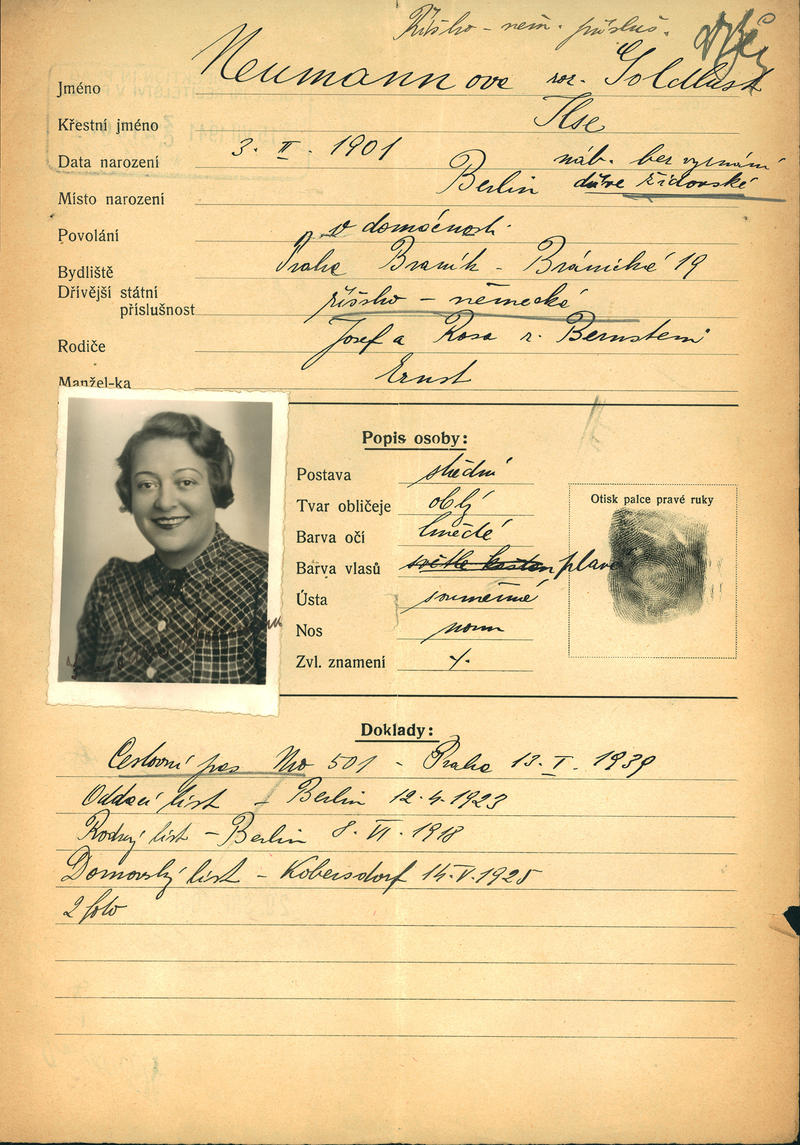 Říšsko - něm. přísluš.
Jméno Neumannova roz. Goldlust
Křestní jméno Ilse
Data narození 3. II. 1901 náb. bez vyznání
Místo narození Berlin dříve židovské
Povolání v domácnosti
Bydliště Praha Braník - Bránická 19
Dřívější státní
příslušnost říšsko - německá
Rodiče Josef a Rosa r. Bernstein
Manžel-ka Ernst
Popis osoby:
Postava střední
Tvar obličeje oblý
Barva očí hnědé
Barva vlasů světle kaštan plavé
Ústa souměrné
Nos norm
Zvl. znamení
Otisk palce pravé ruky
Doklady:
Cestovní pas No 501 - Praha 13. I. 1939
Oddací list - Berlin 12.4.1923
Rodný list - Berlin 8. VI. 1918
Domovský list - Kobersdorf 14.V.1925
2 foto